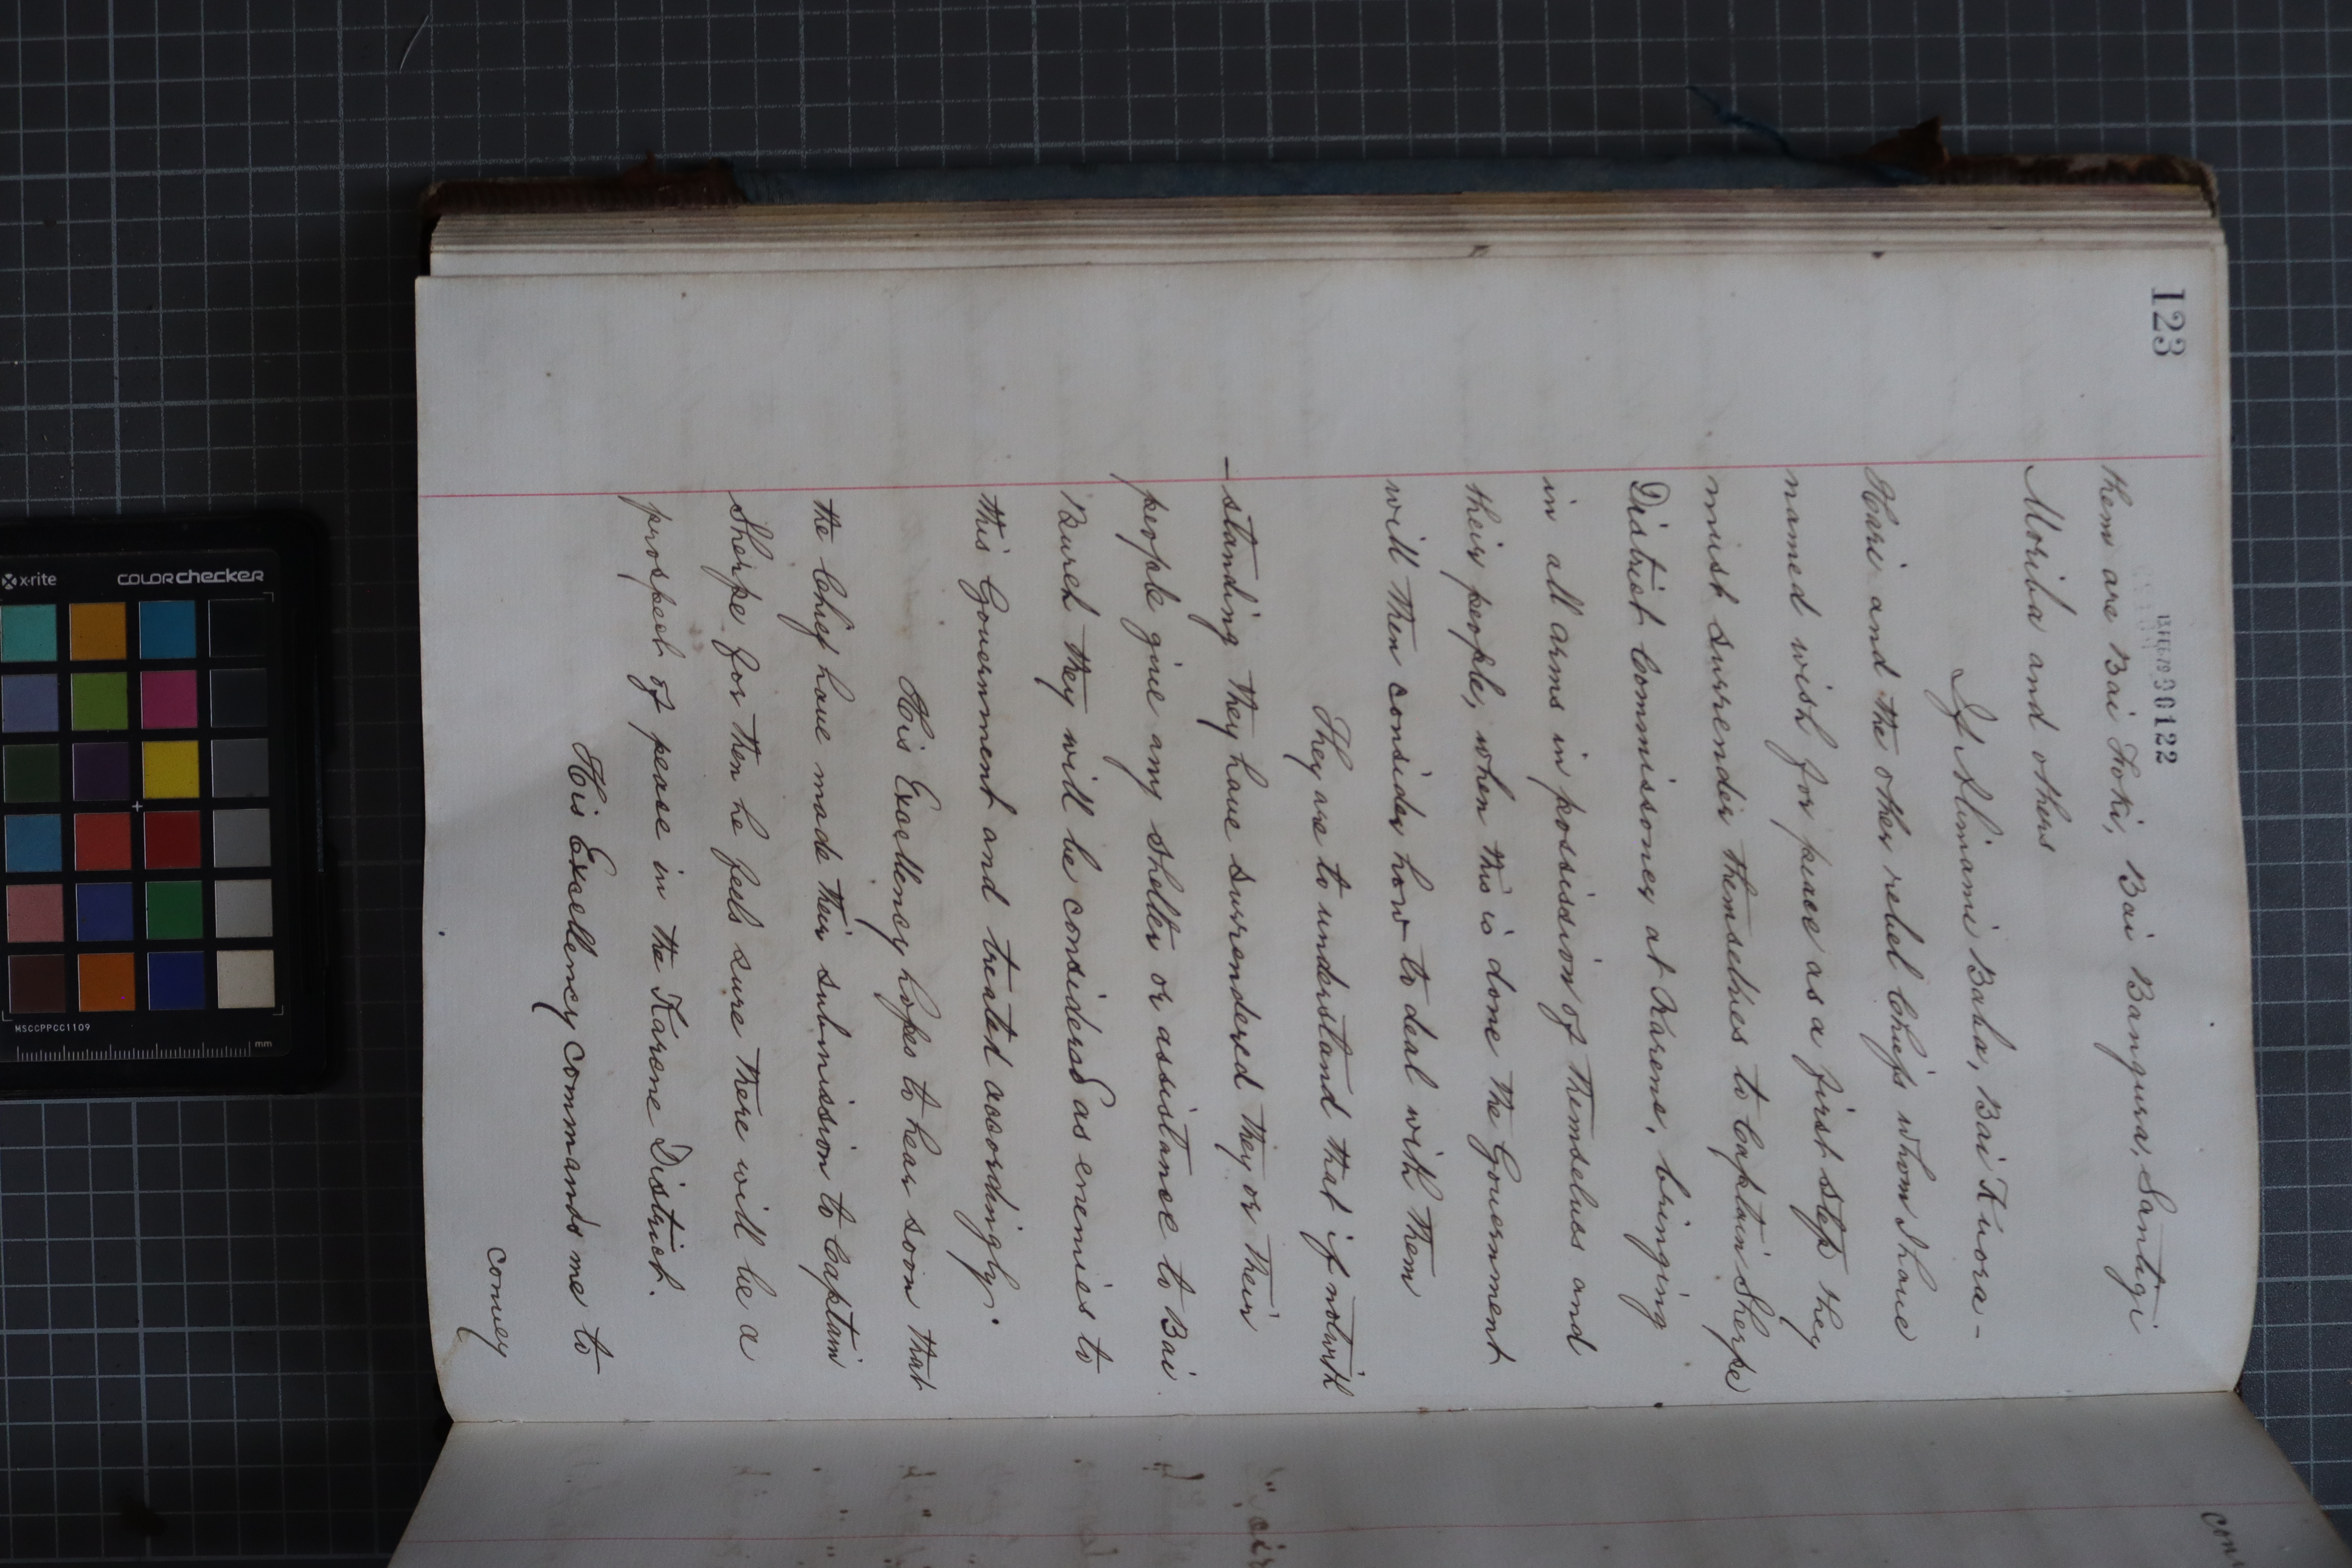 123
30122
them are Bai Foki, Bai Bangura, Santigi
Moriba and others
If Alimami Baha, Bai Kuora-
Hari and the other rebel Chiefs whom I have
named wish for peace as a first step they
must surrender themselves to Captain Sherpe
District Commissoner at Karene, bringing
in all arms in possission of themselves and
their people, when this is done the Government
will then consider how to deal with them
They are to understand that if notwith
-standing they have surrendered they or their
people give any shelter or assistance to Bai
Bureh they will be considered as enemies to
this Government and treated accordingly.
His Excellency hopes to hear soon that
the Chief have made their submission to Captain
Sherpe for then he feels sure there will be a
prospect of peace in the Karene District.
His Excellency commands me to
convey
x-rite
colorchecker
MSCCPPCC1109
mm